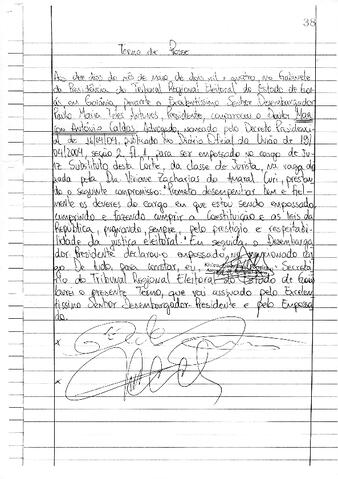 38
Termo de Posse
Aos dez dias do mês de maio de dois mil e quatro, no Gabinete
da Presidência do Tribunal Regional Eleitoral do Estado de Goi-
ás, em Goiânia, perante o Excelentíssimo Senhor Desembargador
Paulo Maria Teles Antunes, Presidente, compareceu o Doutor Mar-
Antônio Caldas, Advogado, nomeado pelo Decreto Presiden-
de 16/04/04, publicado no Diário Oficial da União de 19/
04/2004, seção 2, fl. 1, para ser empossado no cargo de Ju-
iz Substituto desta Corte, da classe de Jurista, na vaga dei-
xada pela Dra. Viviane Zacharias do Amaral Curi, prestan-
do o seguinte compromisso: "Prometo desempenhar bem e fiel-
mente os deveres do cargo em que estou sendo empossado,
cumprindo e fazendo cumprir a Constituição e as leis da
República, pugnando, sempre, pelo prestígio e respeitabi-
lidade da justiça eleitoral." Em seguida, o Desembarga-
dor Presidente declarou-o empossado no mencionado car-
go. De tudo, para constar, eu, Secretá-
rio do Tribunal Regional Eleitoral do Estado de Goiás,
lavrei o presente Termo, que vai assinado pelo Excelen-
tíssimo Senhor Desembargador-Presidente e pelo Empossa-
do.
x
x